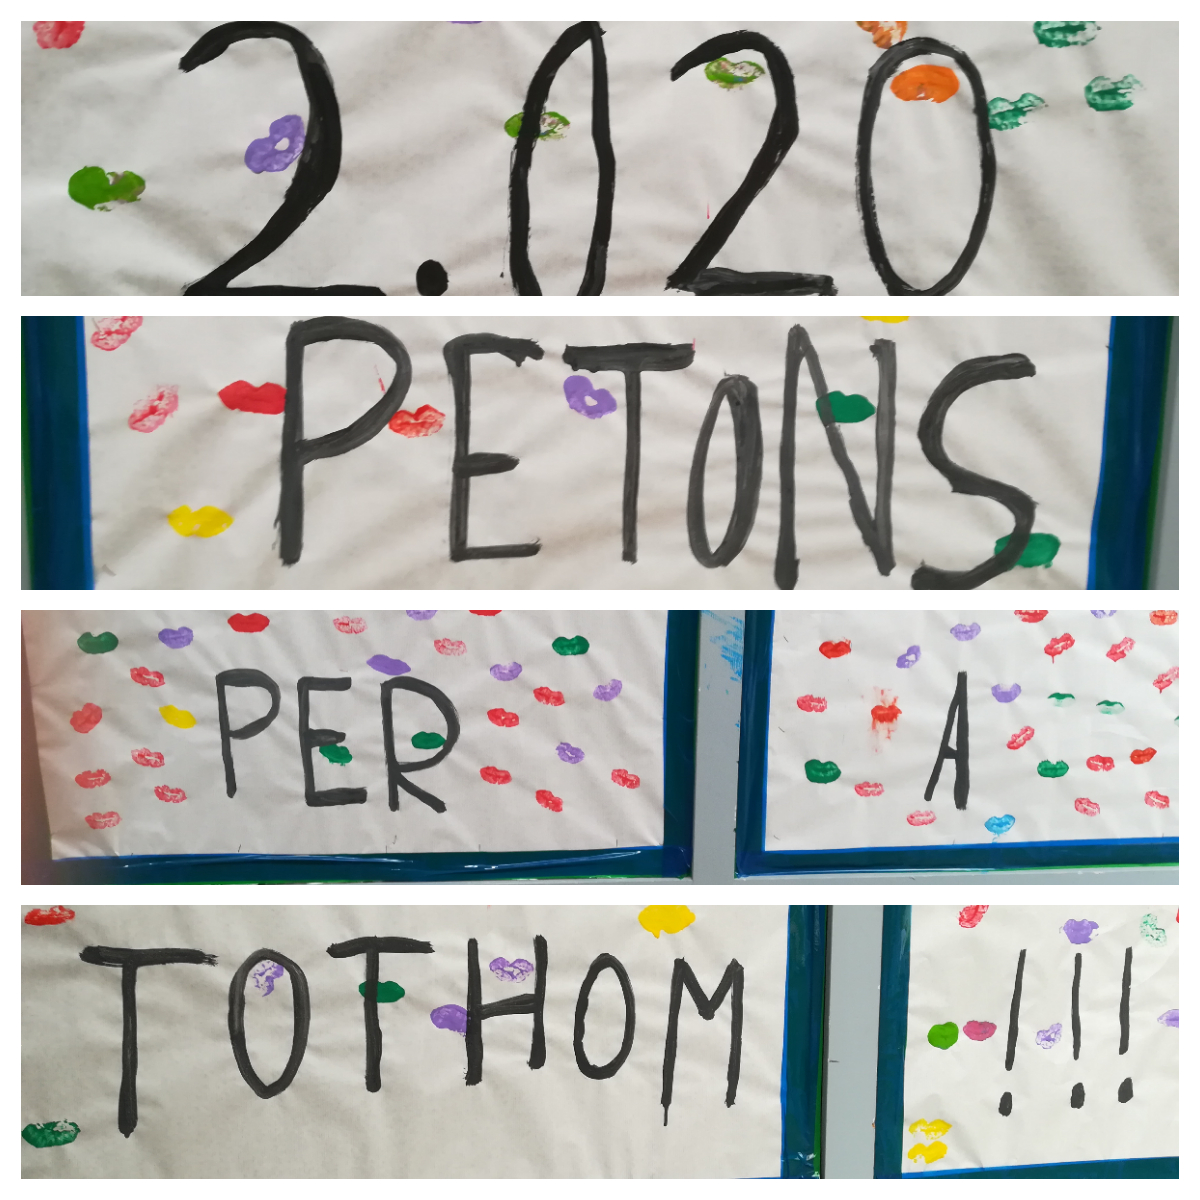 2.020
PETONS
PER A
TOTHOM !!!